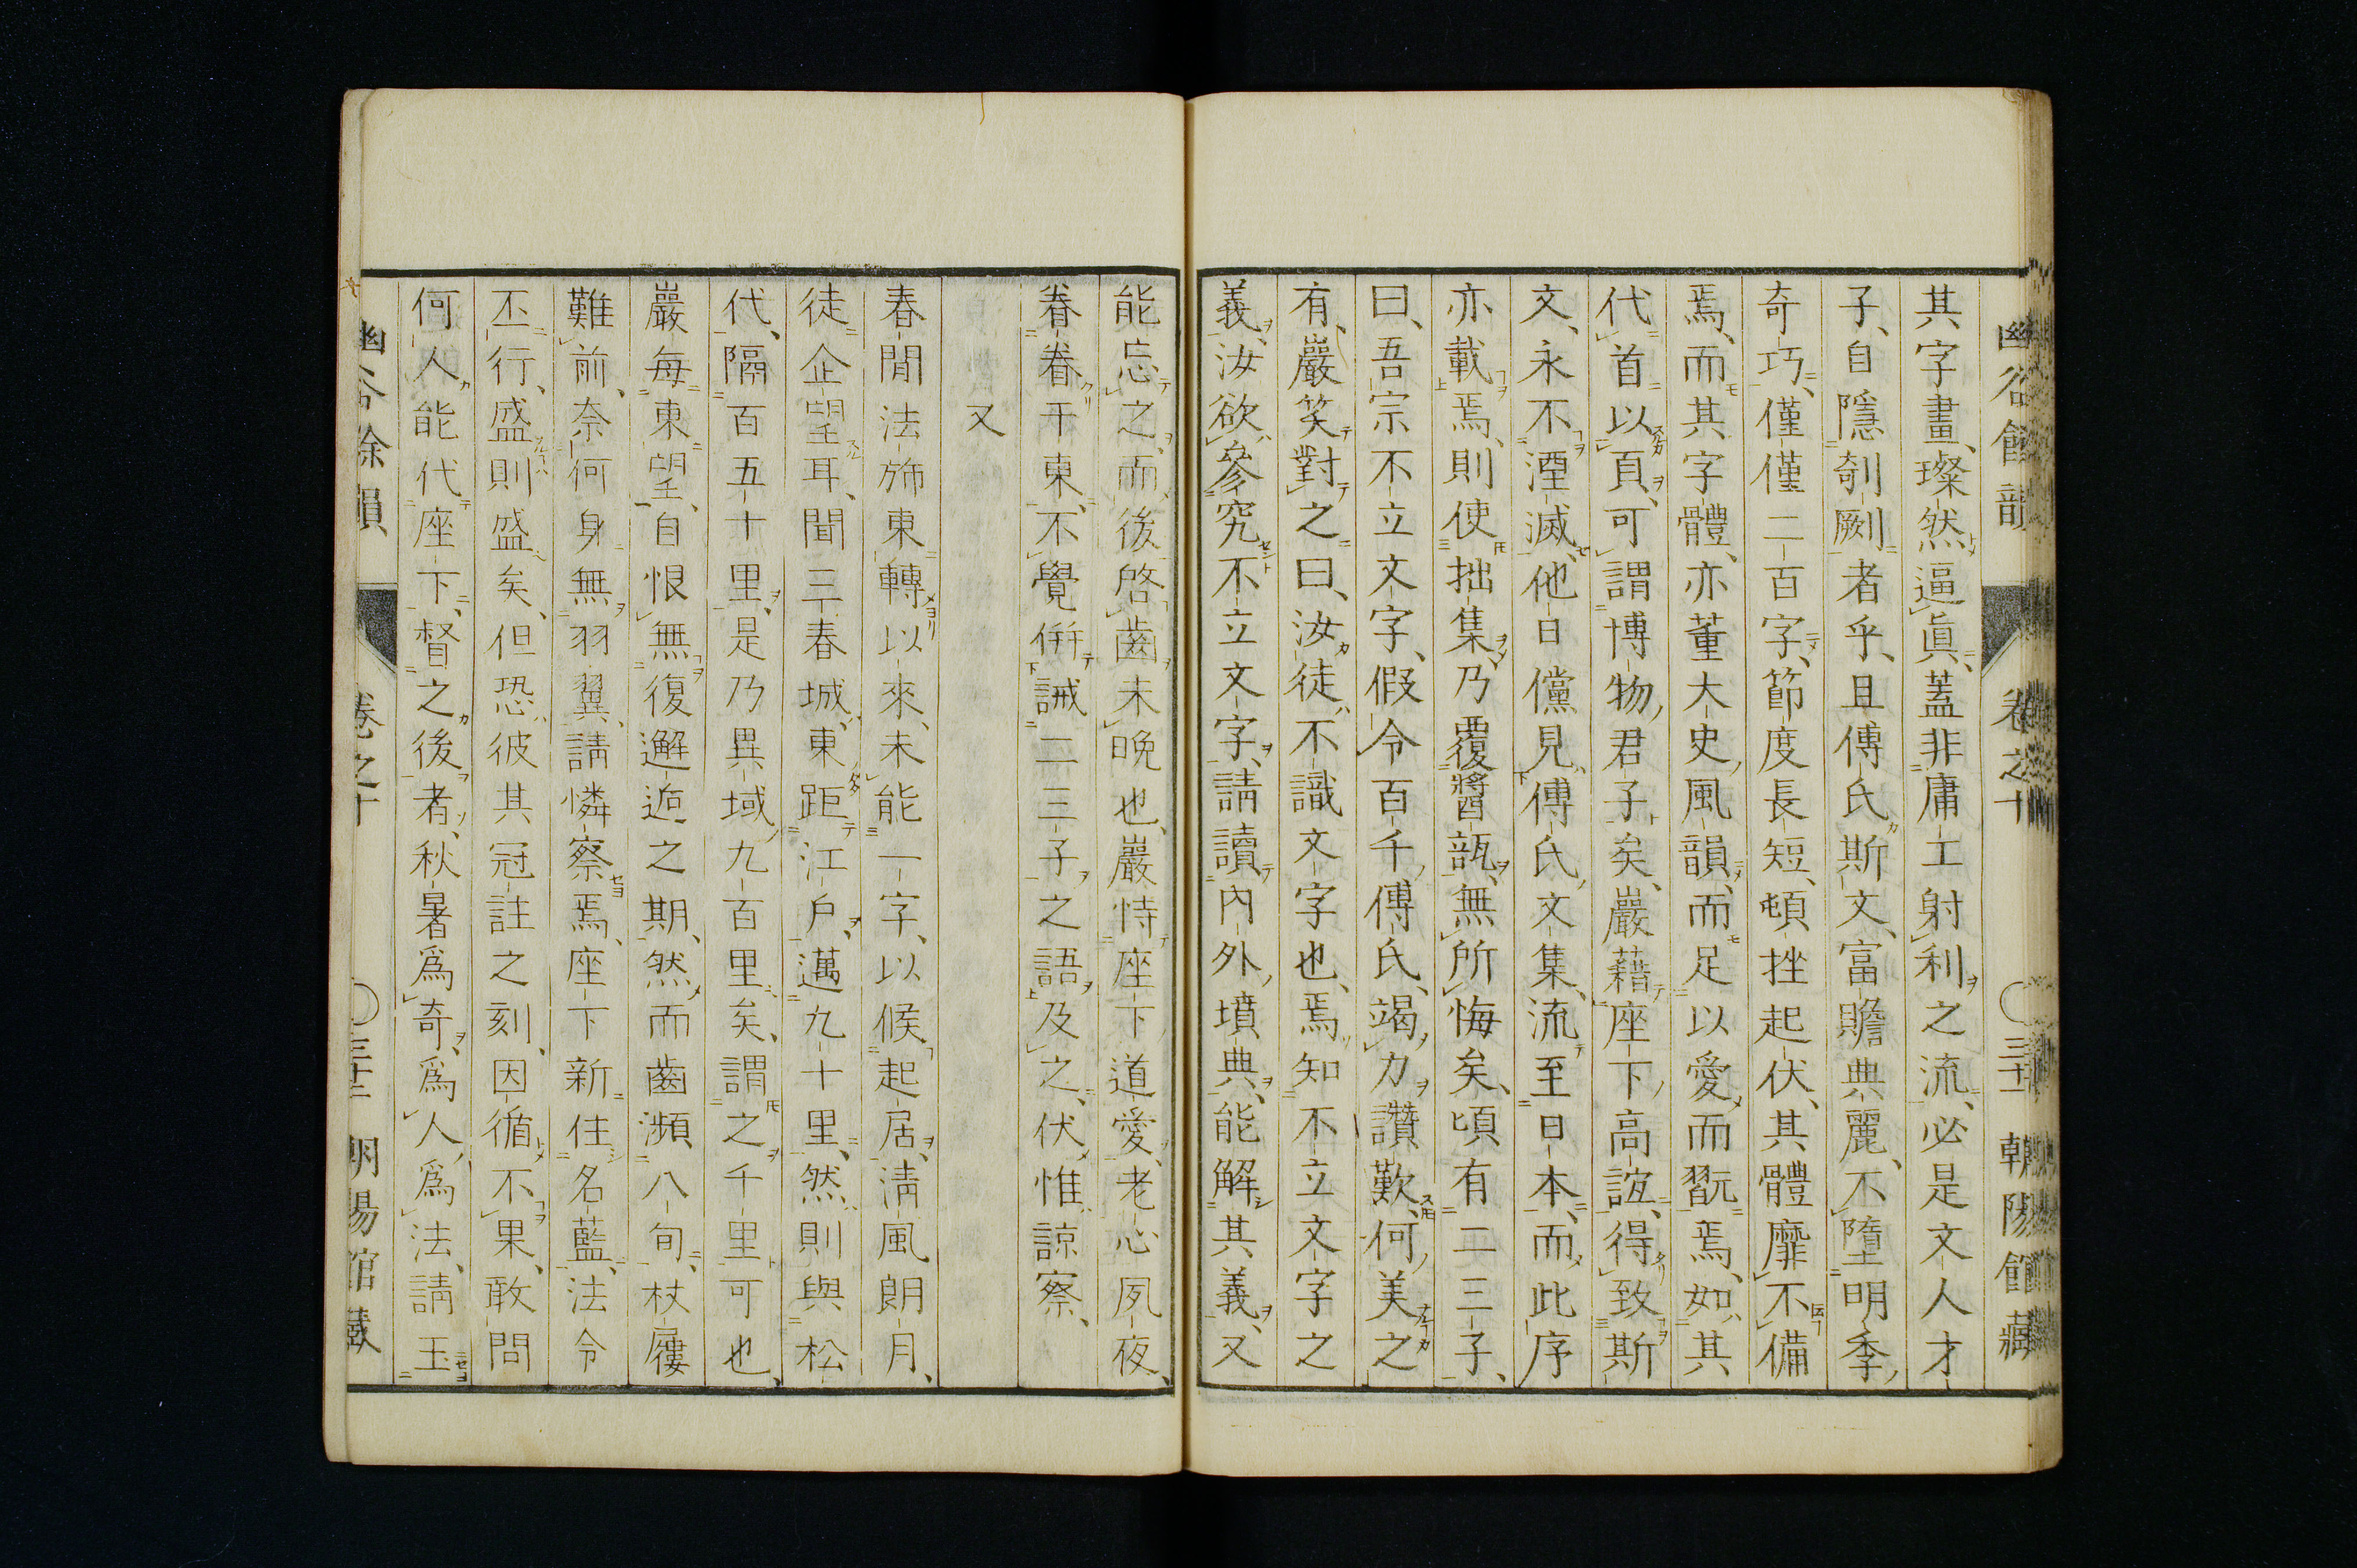 其字畫、璨然逼眞、蓋非庸工射利之流、必是文人才
子、自隱剞劂者乎、且傅氏斯文、富贍典麗、不墮明季
奇巧、僅僅二百字、節度長短、頓挫起伏、其體靡不備
焉、而其字體、亦董大史風韻、而足以愛而翫焉、如其
代首以頁、可謂博物君子矣、巖藉座下高誼、得致斯
文、永不湮滅、他日儻見傅氏文集、流至日本、而此序
亦載焉、則使拙集乃覆醬瓿、無所悔矣、頃有二三子、
曰、吾宗不立文字、假令百千傅氏、竭力讚歎、何美之
有、巖笑對之曰、汝徒不識文字也、焉知不立文字之
義、汝欲參究不立文字、請讀內外墳典、能解其義、又
能忘之、而後啓齒未晚也、巖恃座下道愛、老心夙夜、
眷眷于東、不覺倂誡二三子之語及之、伏惟諒察、
又
春間法斾東轉以來、未能一字、以候起居、淸風朗月、
徒企望耳、聞三春城東距江戶、邁九十里、然則與松
代、隔百五十里、是乃異域九百里矣、謂之千里可也、
巖每東望、自恨無復邂逅之期、然而齒瀕八旬、杖屨
難前、奈何身無羽翼、請憐察焉、座下新住名藍、法令
丕行、盛則盛矣、但恐彼其冠註之刻、因循不果、敢問
何人能代座下、督之後者、秋暑爲奇、爲人爲法、請玉
幽谷餘韻 卷之十 〇三十二 朝陽館藏